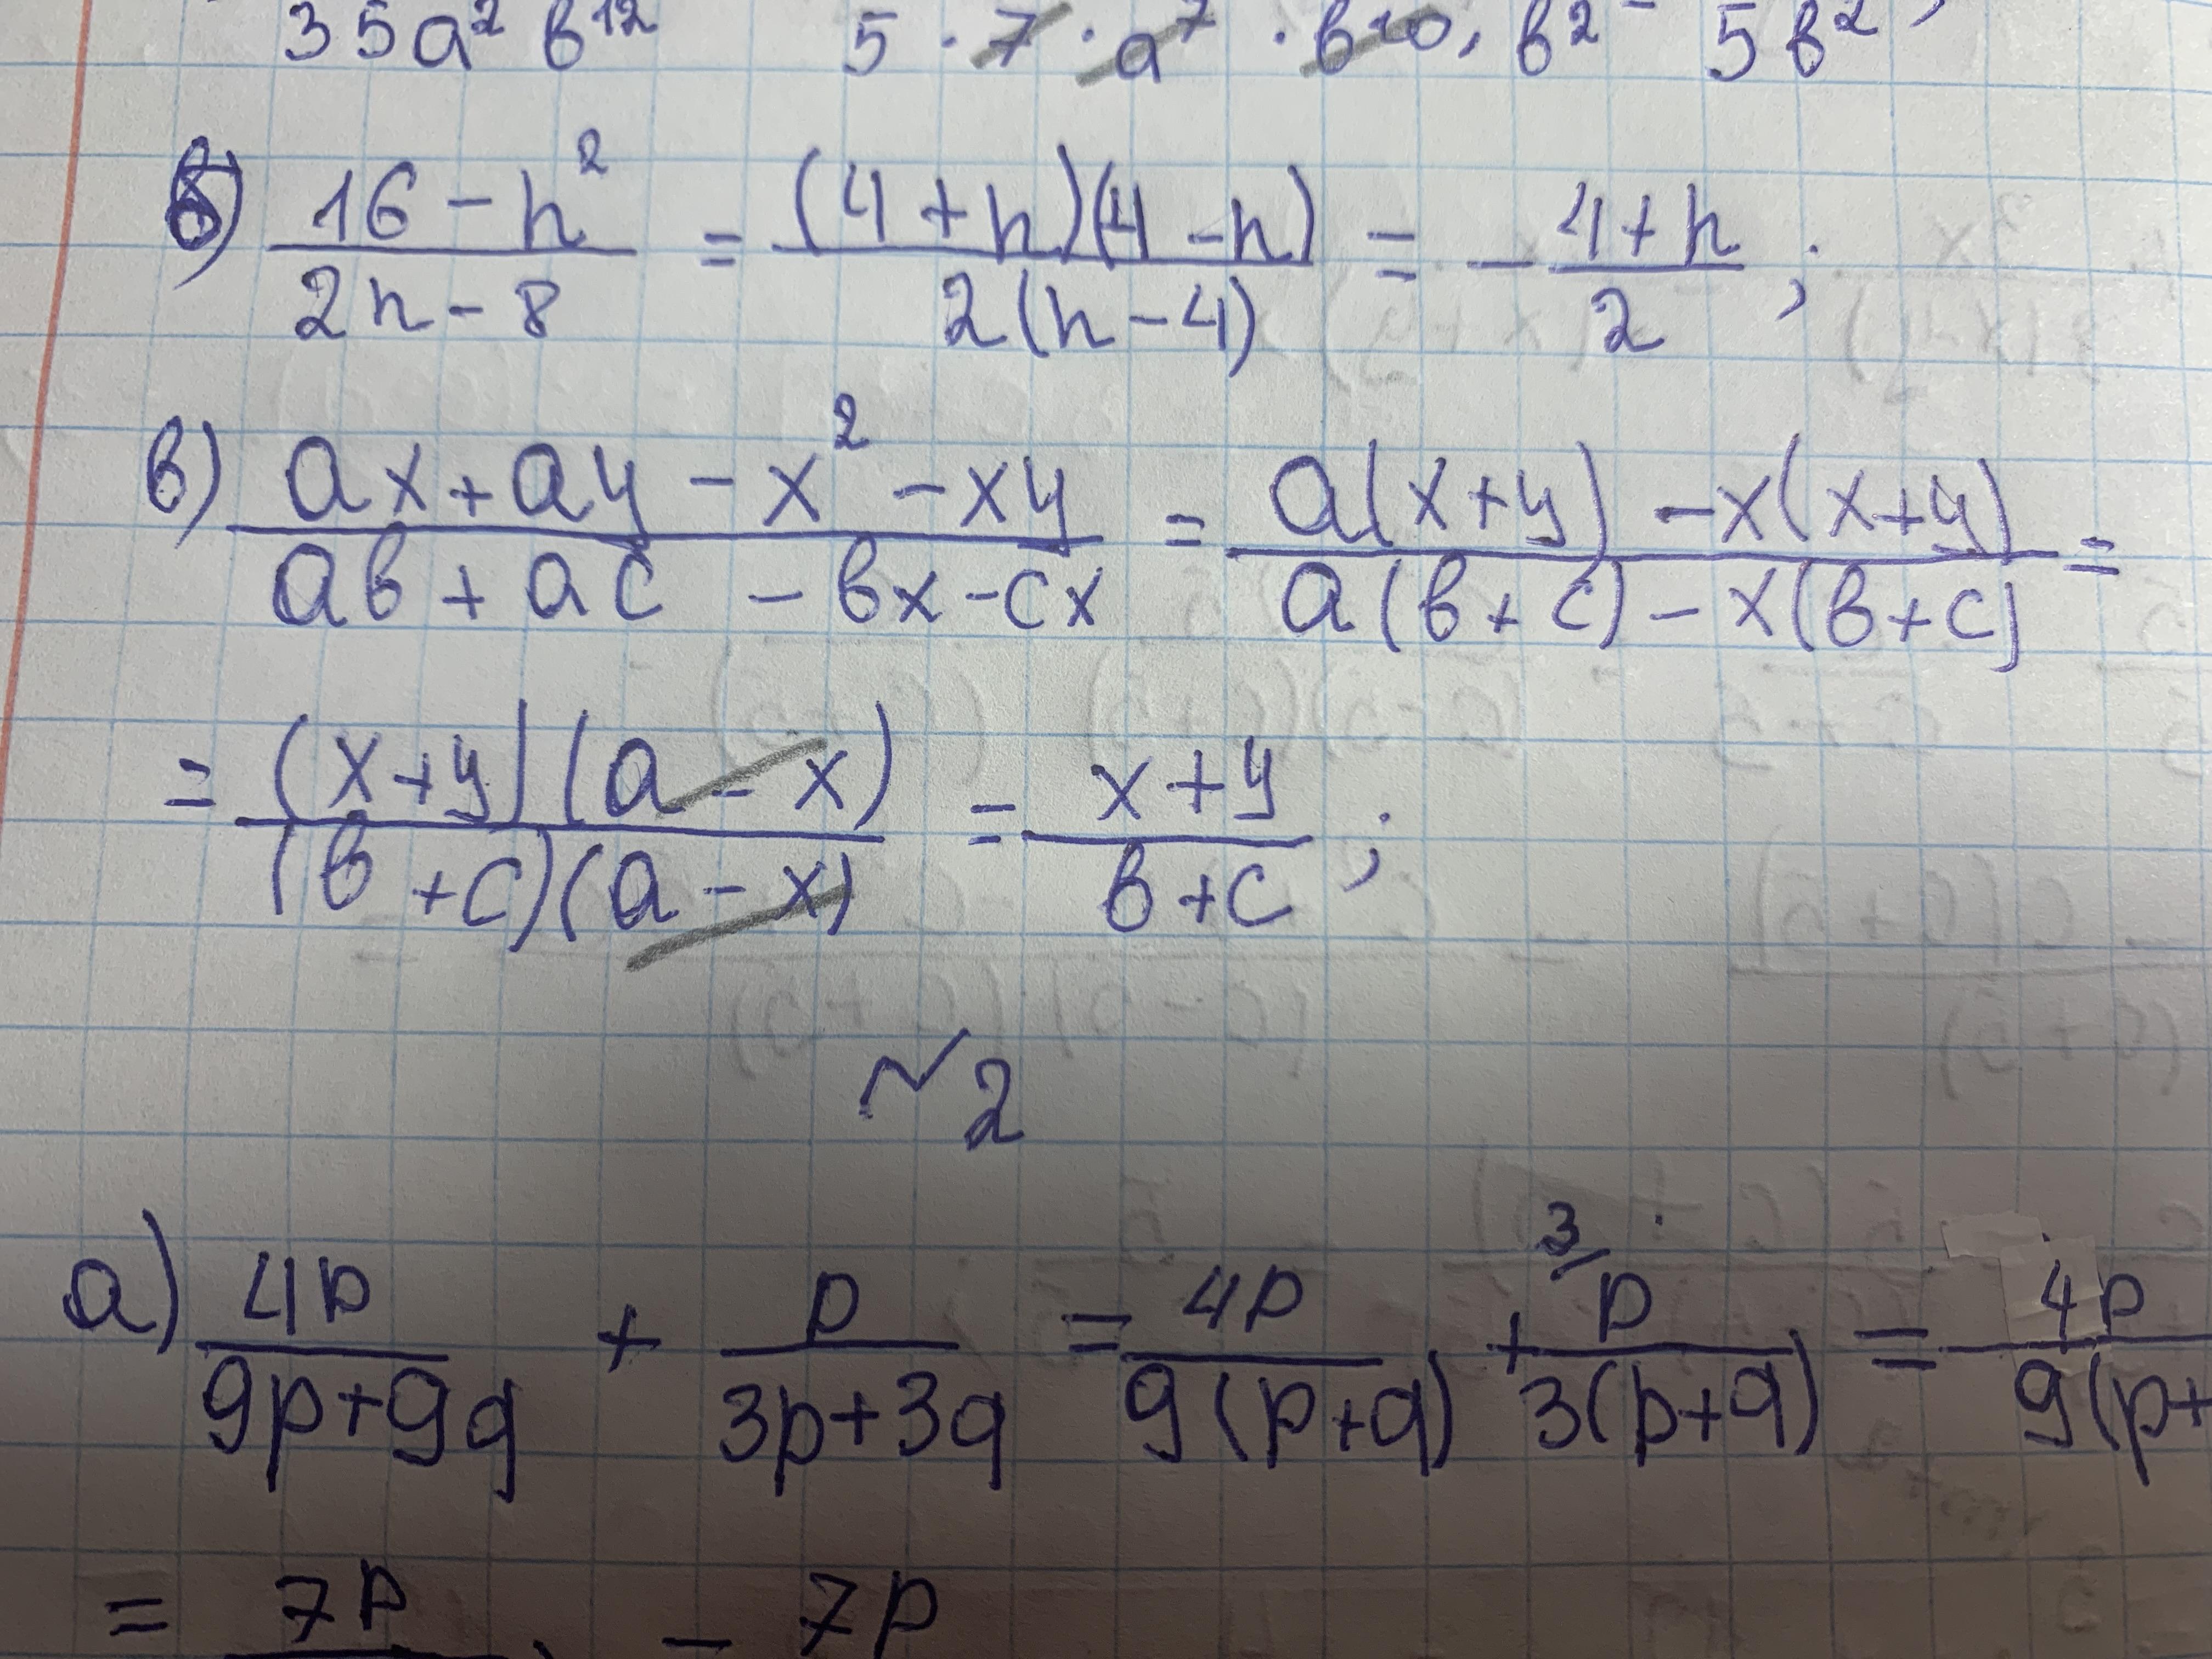 35a² b¹² 5 · 7 · a⁷ · b¹⁰ · b² 5b²
б) (16 - n²)/(2n - 8) = ((4 + n)(4 - n))/(2(n - 4)) = - (4 + n)/2 ;
в) (ax + ay - x² - xy)/(ab + ac - bx - cx) = (a(x+y) - x(x+y))/(a(b+c) - x(b+c)) =
= ((x+y)(a - x))/((b+c)(a - x)) = (x+y)/(b+c) ;
~2
а) 4p/(9p+9q) + p/(3p+3q) = 4p/(9(p+q)) + ³/ p/(3(p+q)) = 4p/(9(p+
= 7p 7p